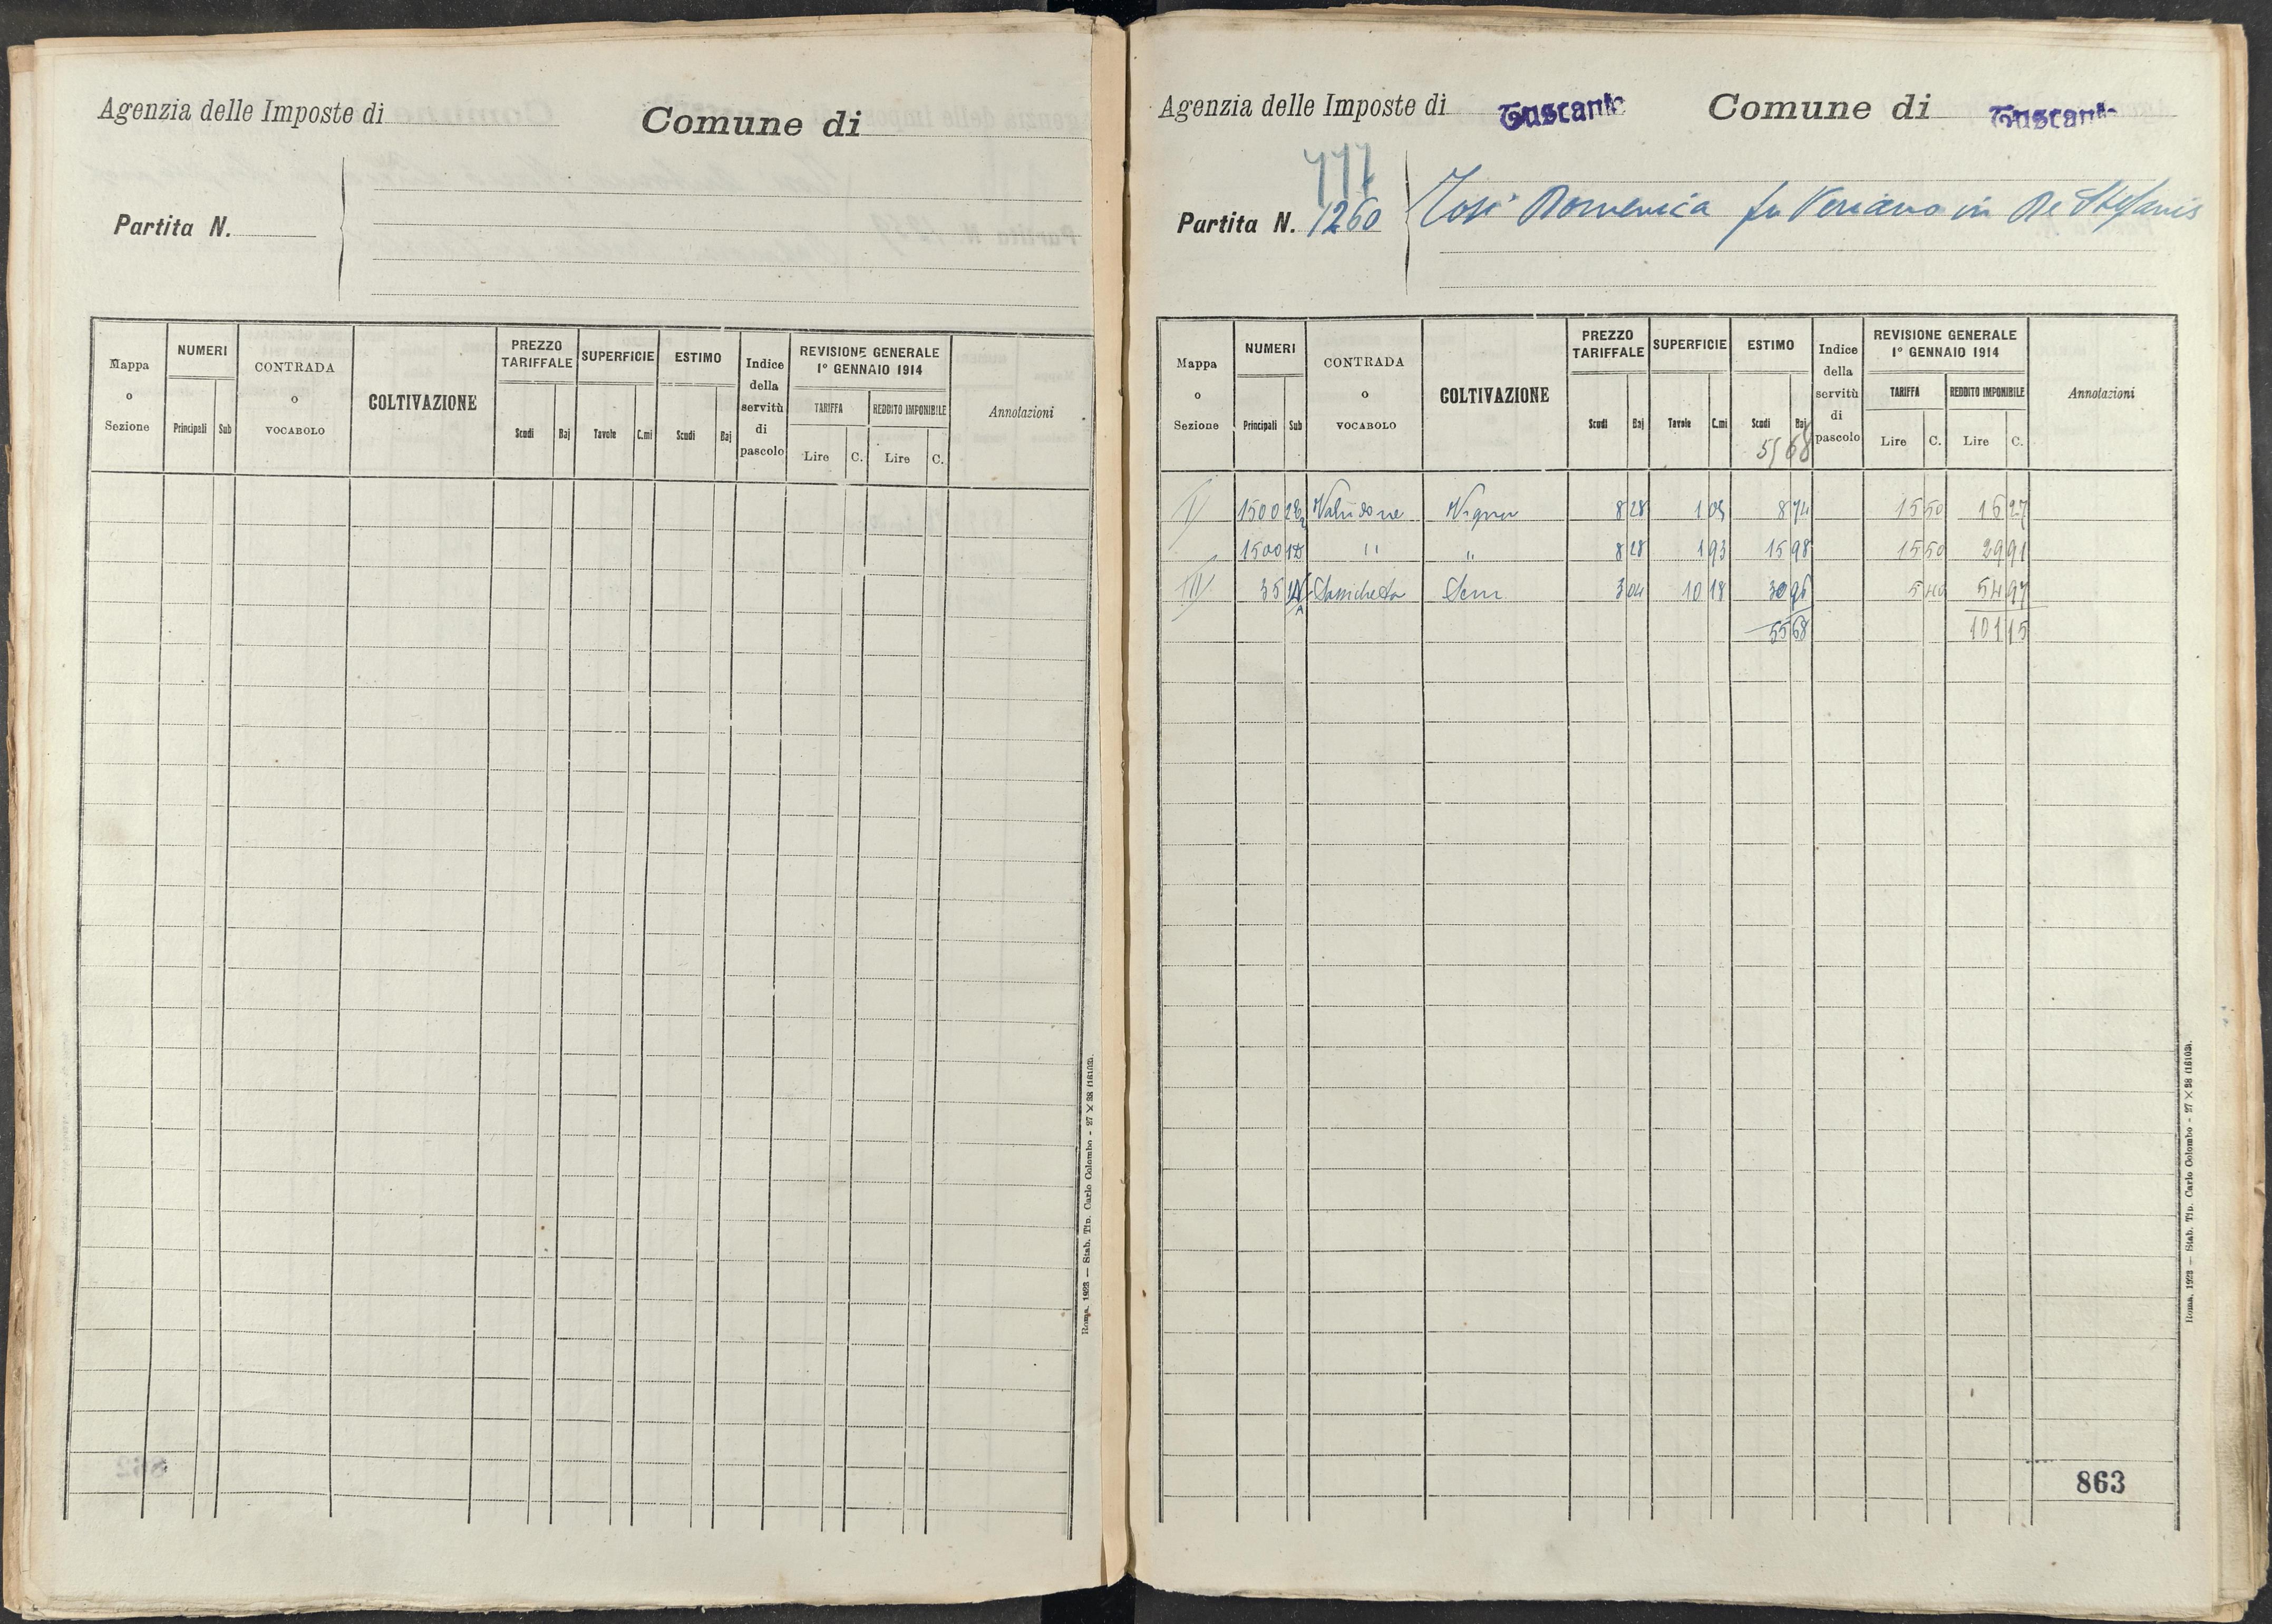 Agenzia delle Imposte di
Comune di
Partita N.
Mappa o Sezione
NUMERI
Principali Sub
CONTRADA o VOCABOLO
COLTIVAZIONE
PREZZO TARIFFALE
Scudi Baj
SUPERFICIE
Tavole C.mi
ESTIMO
Scudi Baj
Indice della servitù di pascolo
REVISIONE GENERALE
1° GENNAIO 1914
TARIFFA REDDITO IMPONIBILE
Lire C. Lire C.
Annotazioni
Roma, 1923 — Stab. Tip. Carlo Colombo - 27 × 38 (16103).
Agenzia delle Imposte di Tuscania Comune di Tuscania
777
Partita N. 1260 Tosi Domenica fu Veriano in De Stefanis
Mappa o Sezione
NUMERI
Principali Sub
CONTRADA o VOCABOLO
COLTIVAZIONE
PREZZO TARIFFALE
Scudi Baj
SUPERFICIE
Tavole C.mi
ESTIMO
Scudi Baj
55 68
Indice della servitù di pascolo
REVISIONE GENERALE
1° GENNAIO 1914
TARIFFA REDDITO IMPONIBILE
Lire C. Lire C.
Annotazioni
1500 Valvidone Vigna 8 28 1 05 8 74 15 50 16 27
1500 " " 8 28 1 93 15 98 15 50 29 91
35 Sassicheta Sem 3 04 10 18 30 96 5 40 54 97
55 68 101 15
Roma, 1923 — Stab. Tip. Carlo Colombo - 27 × 38 (16103).
863